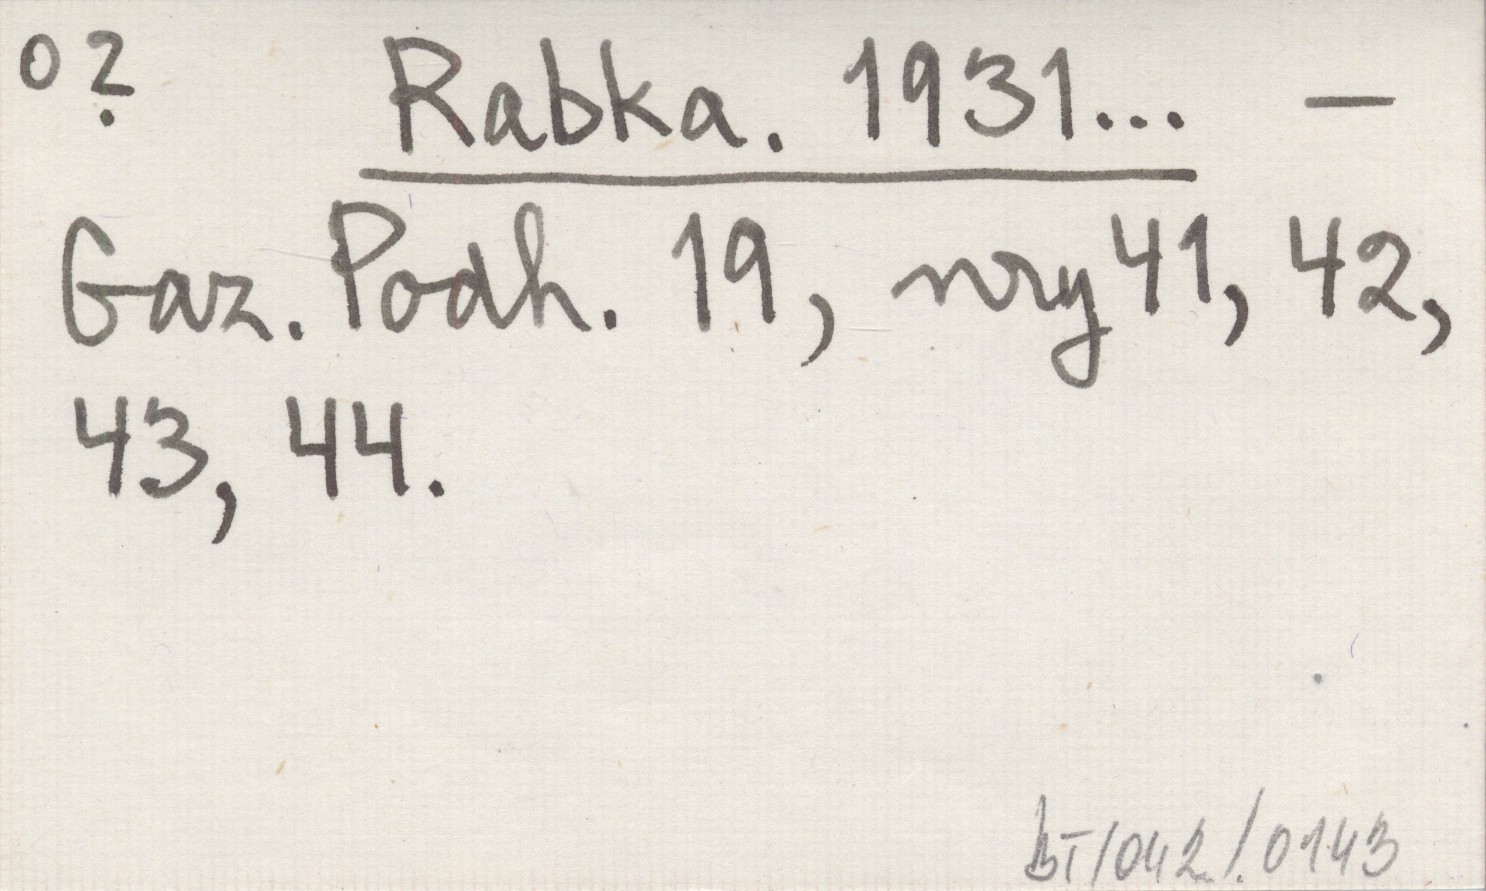 o ? Rabka. 1931... —
Gaz. Podh. 19, nry 41, 42,
43, 44.
BT/042/0143